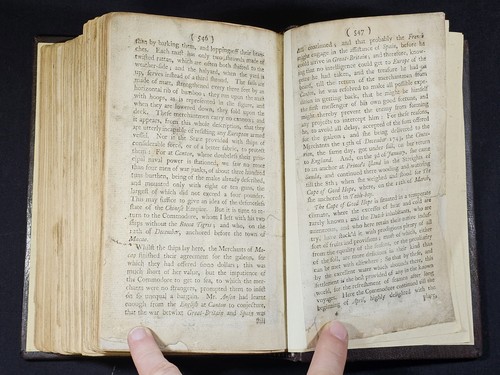 ( 546 )
ship by barking them, and lopping off their branches. Each mast has only two shrouds made of
twisted rattan, which are often both shifted to the
weather-side; and the halyard, when the yard is
up, serves instead of a third shroud. The sails are
made of mats, strengthened every three feet by an
horizontal rib of bamboo; they run upon the mast
with hoops, as is represented in the figure, and
when they are lowered down, they fold upon the
deck. These merchantmen carry no cannon; and
it appears, from this whole description, that they
are utterly incapable of resisting any European armed
vessel. Nor is the State provided with ships of
considerable force, or of a better fabric, to protect
them: For at Canton, where doubtless their principal naval power is stationed, we saw no more
than four men of war junks, of about three hundred
tuns burthen, being of the make already described,
and mounted only with eight or ten guns, the
largest of which did not exceed a four pounder.
This may suffice to give an idea of the defenceless
state of the Chinese Empire. But it is time to return to the Commodore, whom I left with his two
ships without the Bocca Tigris; and who, on the
12th of December, anchored before the town of
Macao.
Whilst the ships lay here, the Merchants of Macao finished their agreement for the galeon, for
which they had offered 6000 dollars; this was
much short of her value, but the impatience of
the Commodore to get to sea, to which the merchants were no strangers, prompted them to insist
on so unequal a bargain. Mr. Anson had learnt
enough from the English at Canton to conjecture,
that the war betwixt Great-Britain and Spain was
still
( 547 )
still continued; and that probably the French
might engage in the assistance of Spain, before he
could arrive in Great-Britain; and therefore, knowing that no intelligence could get to Europe of the
prize he had taken, and the treasure he had on
board, till the return of the merchantmen from
Canton, he was resolved to make all possible expedition in getting back, that he might be himself
the first messenger of his own good fortune, and
might thereby prevent the enemy from forming
any projects to intercept him: For these reasons,
he, to avoid all delay, accepted of the sum offered
for the galeon; and she being delivered to the
Merchants the 15th of December 1743, the Centurion, the same day, got under sail, on her return
to England. And, on the 3d of January, she came
to an anchor at Prince's Island in the Streights of
Sunda, and continued there wooding and watering
till the 8th; when she weighed and stood for The
Cape of Good Hope, where, on the 11th of March,
she anchored in Table-bay.
The Cape of Good Hope is situated in a temperate
climate, where the excesses of heat and cold are
rarely known; and the Dutch inhabitants, who are
numerous, and who here retain their native industry, have stock'd it with prodigious plenty of all
sort of fruits and provisions; most of which, either
from the equality of the seasons, or the peculiarity
of the soil, are more delicious in their kind than
can be met with elsewhere: So that by these, and
by the excellent water which abounds there, this
Settlement is the best provided of any in the known
world, for the refreshment of seamen after long
voyages. Here the Commodore continued till the
beginning of April, highly delighted with the